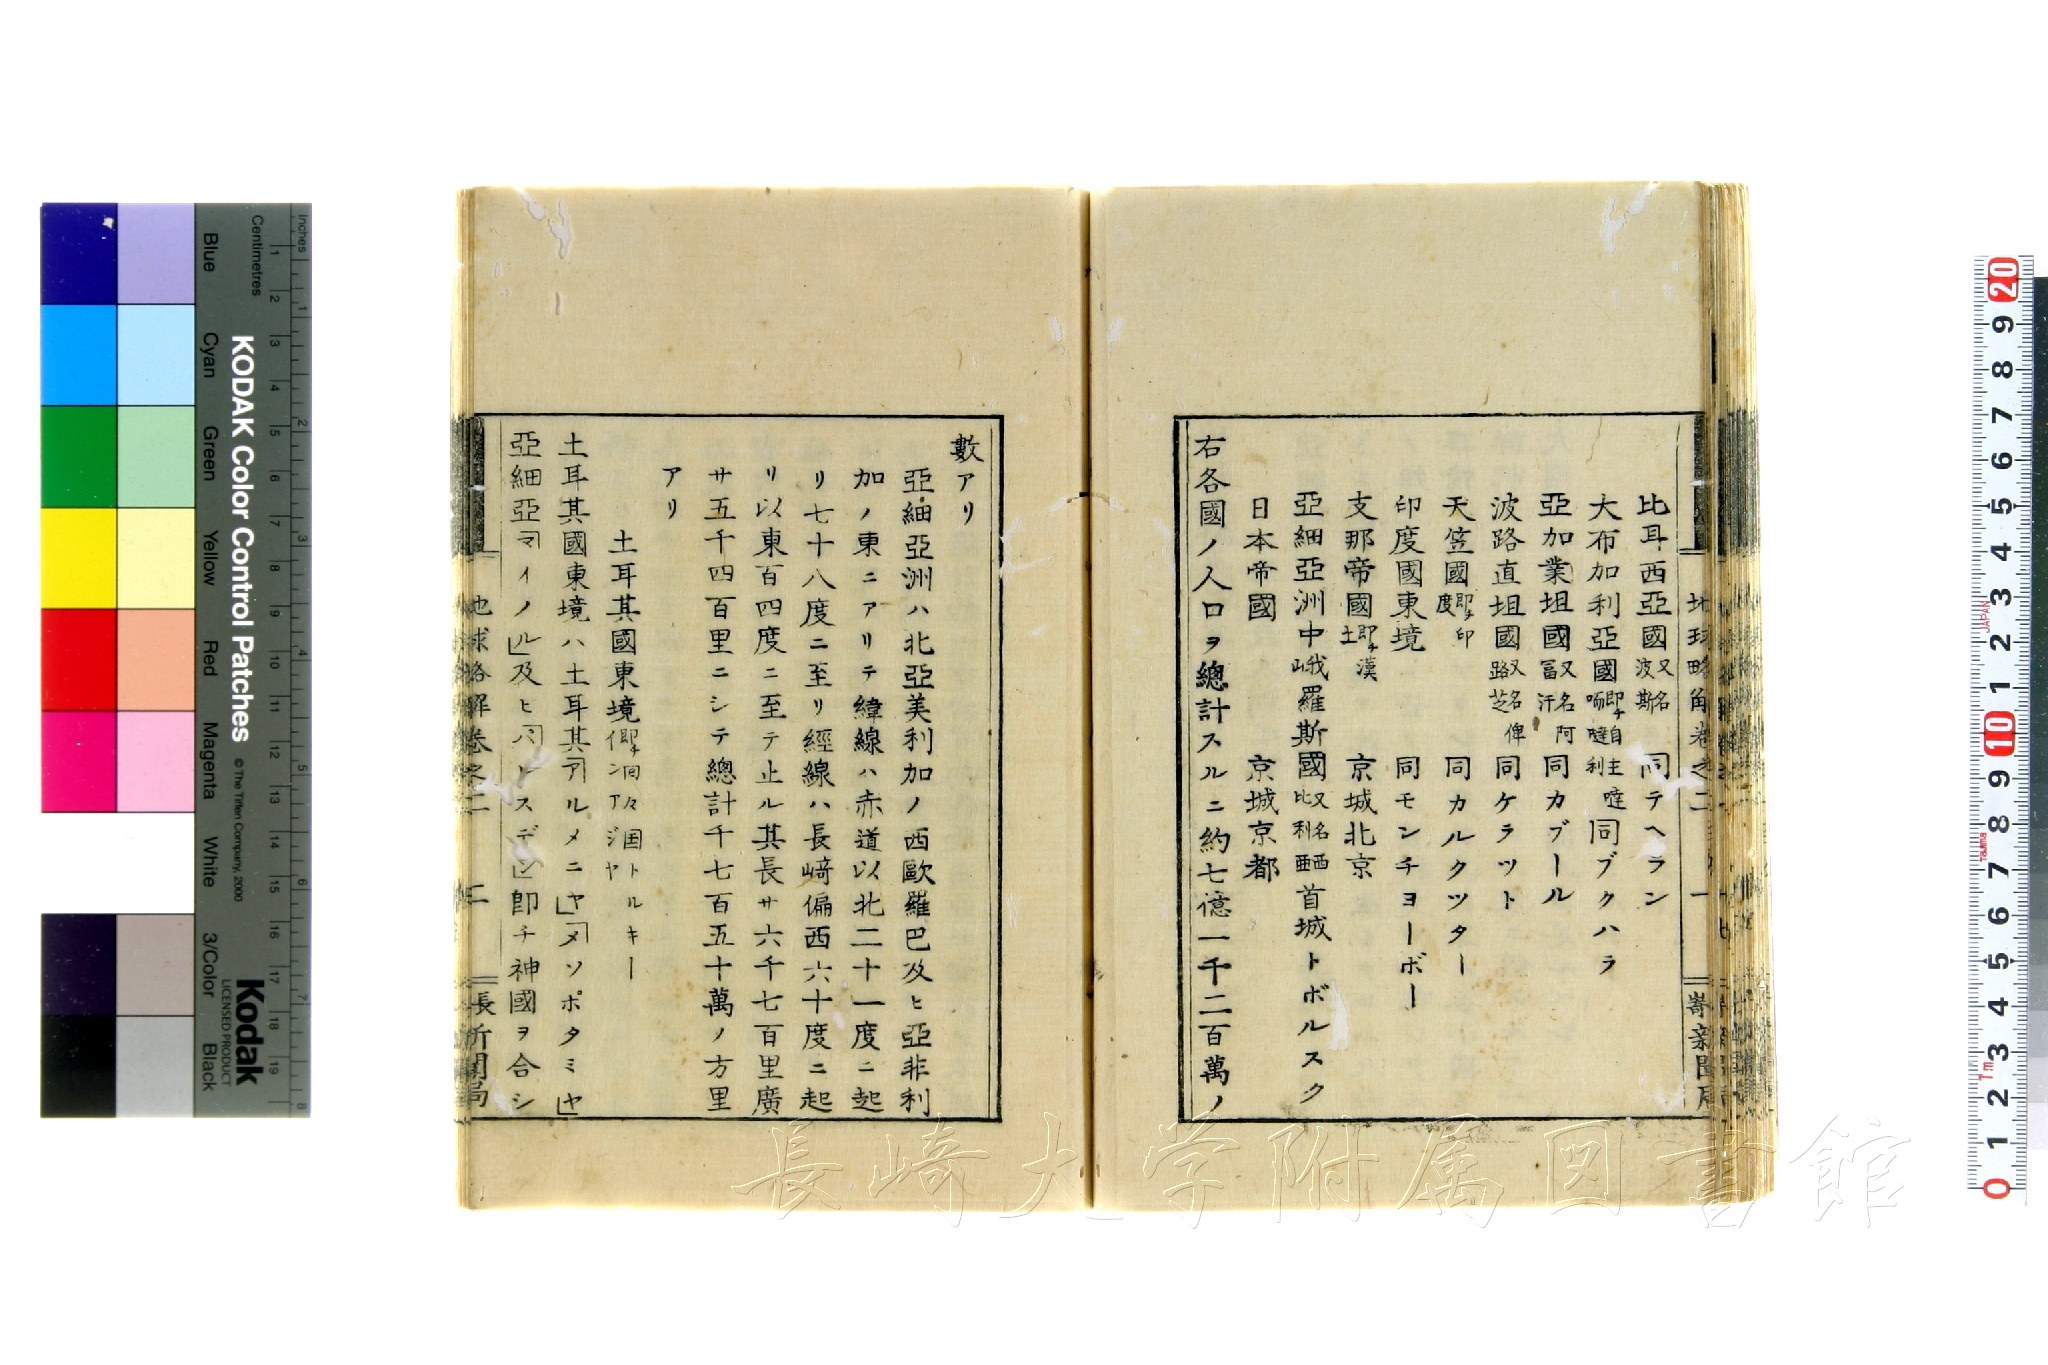 比耳西亞國又名波斯 同テヘラン
大布加利亞國即チ自主噠唡噠利 同ブクハラ
亞加業坦國又名阿富汗 同カブール
波路直坦國又名俾路芝 同ケラツト
天笠國即チ印度 同カルクツター
印度國東境 同モンチヨーボー
支那帝國即チ漢土 京城北京
亞細亞洲中峨羅斯國又名西比利亜 首城トボルスク
日本帝國 京城京都
右各國ノ人口ヲ總計スルニ約七億一千二百萬ノ
數アリ
亞細亞洲ハ北亞美利加ノ西歐羅巴及ヒ亞非利
加ノ東ニアリテ緯線ハ赤道以北二十一度ニ起
リ七十八度ニ至リ經線ハ長﨑偏西六十度ニ起
リ以東百四度ニ至テ止ル其長サ六千七百里廣
サ五千四百里ニシテ總計千七百五十萬ノ方里
アリ
土耳其國東境即チ回々国トルキーンアジヤ
土耳其國東境ハ土耳其「アルメニヤ」「メソポタミヤ」
亞細亞「マイノル」及ヒ「パレスデン」即チ神國ヲ合シ
地球略解卷之二 二 長
﨑新聞局
KODAK Color Control Patches
© The Tiffen Company, 2000
Kodak
LICENSED PRODUCT
Inches
Centimetres
Blue
Cyan
Green
Yellow
Red
Magenta
White
3/Color
Black
1 2 3 4 5 6 7 8 9 10 11 12 13 14 15 16 17 18 19
1 2 3 4 5 6 7 8
20
9
8
7
6
5
4
3
2
1
10
9
8
7
6
5
4
3
2
1
0
長崎大学附属図書館